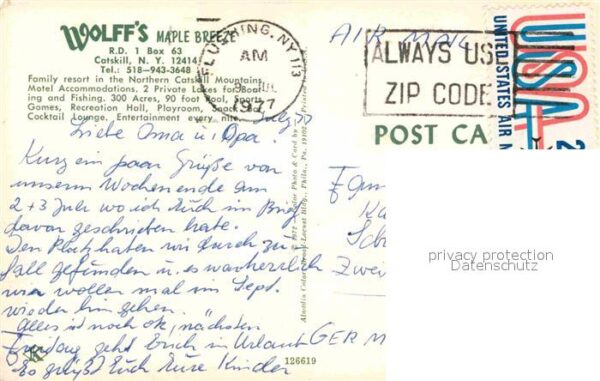 WOLFF'S MAPLE BREEZE
R.D. 1 Box 63
Catskill, N. Y. 12414
Tel.: 518-943-3648
Family resort in the Northern Catskill Mountains.
Motel Accommodations. 2 Private Lakes for Boat-
ing and Fishing. 300 Acres, 90 foot Pool, Sports,
Games, Recreation Hall, Playroom, Snack
Cocktail Lounge. Entertainment every nite.
FLUSHING, NY 113
AM
JUL
1977
AIR MAIL
ALWAYS USE
ZIP CODE
USA
UNITED STATES AIR
POST CA
July
Liebe Oma u. Opa.
Kurz ein paar Grüße von
unserm Wochenende am
2 + 3 July wo ich Euch im Brief
davon geschrieben habe.
Den Platz haben wir durch zu-
fall gefunden u. es war herrlich
wir wollen mal im Sept.
wieder hin gehen.
Alles ist noch ok, nächsten
Freitag geht Erich in Urlaub
Es grüßt Euch Eure Kinder
Fam
Ka
Sch
Zwei
GERM
K
126619
privacy protection
Datenschutz